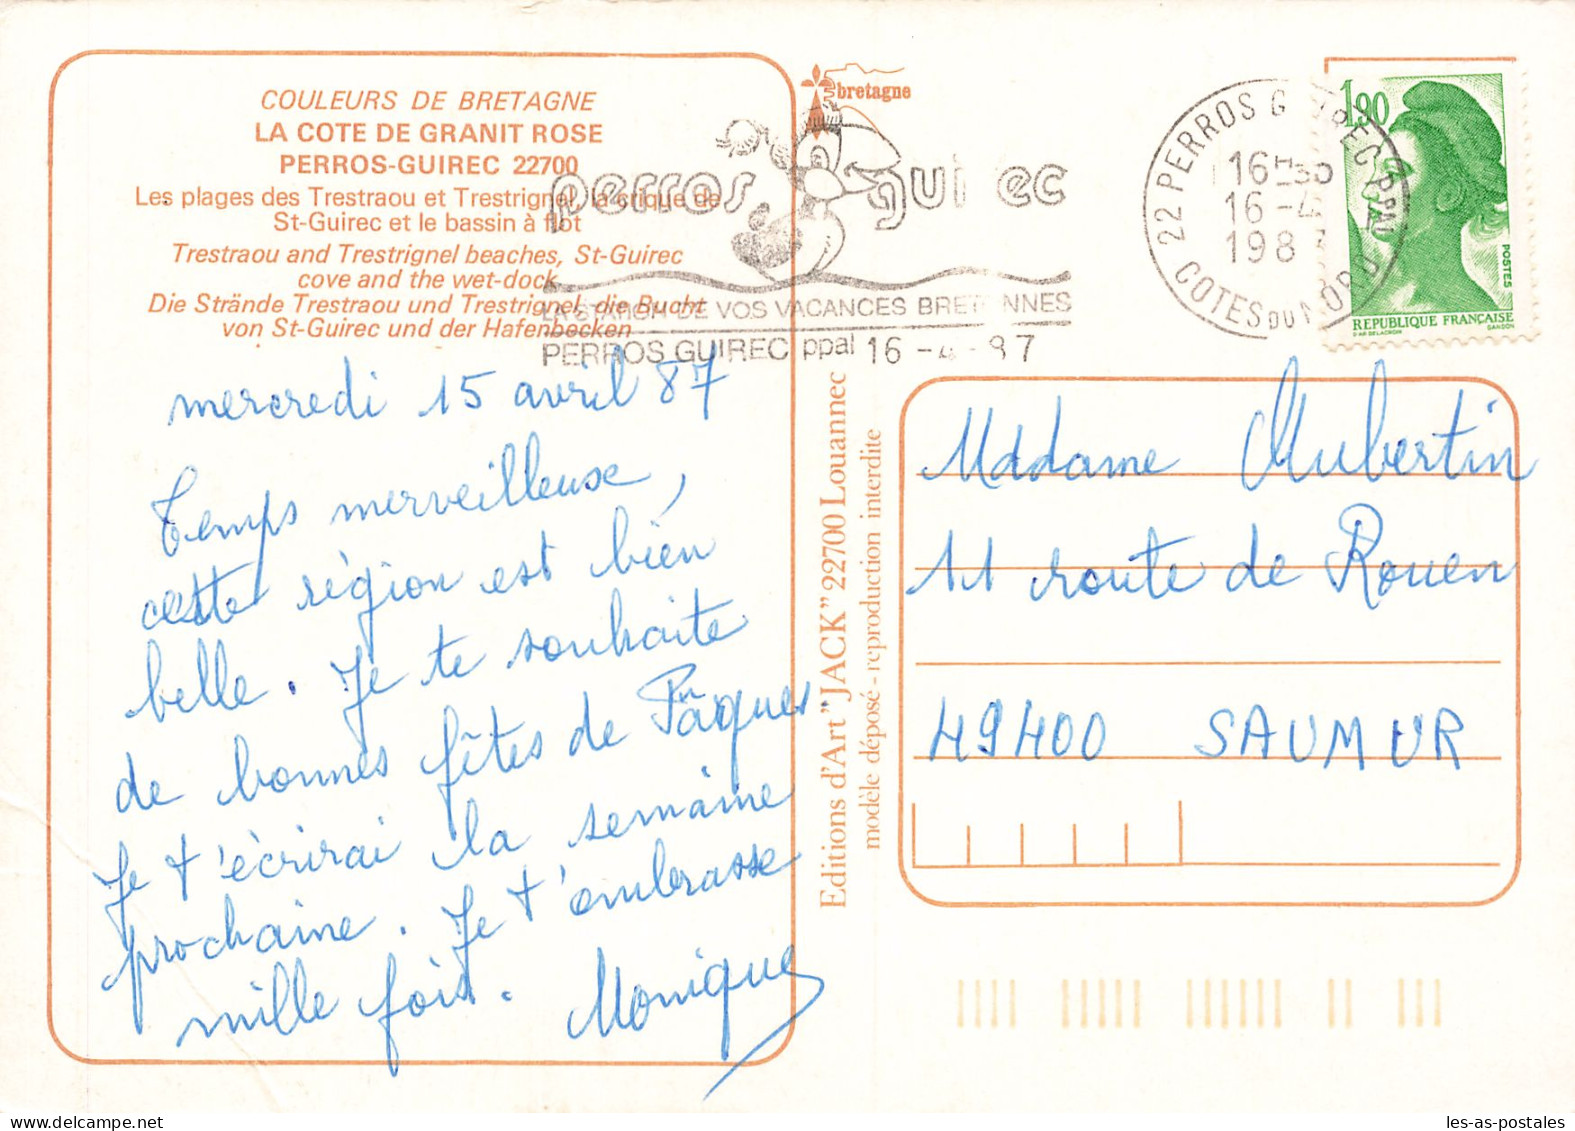 COULEURS DE BRETAGNE
LA COTE DE GRANIT ROSE
PERROS-GUIREC 22700
Les plages des Trestraou et Trestrignel, la crique de
St-Guirec et le bassin à flot
Trestraou and Trestrignel beaches, St-Guirec
cove and the wet-dock
Die Strände Trestraou und Trestrignel, die Bucht
von St-Guirec und der Hafenbecken
bretagne
perros guirec
LA STATION DE VOS VACANCES BRETONNES
PERROS GUIREC ppal 16 - 4 - 87
22 PERROS GUIREC PPAL
16H30
16 - 4
198
COTES DU NORD
1,90
POSTES
REPUBLIQUE FRANÇAISE
D'AP. DELACROIX GANDON
mercredi 15 avril 87
Temps merveilleuse,
cette région est bien
belle. Je te souhaite
de bonnes fêtes de Pâques.
Je t'écrirai la semaine
prochaine. Je t'embrasse
mille fois. Monique
Editions d'Art "JACK" 22700 Louannec
modèle déposé - reproduction interdite
Madame Aubertin
11 route de Rouen
49400 SAUMUR
www.delcampe.net
les-as-postales